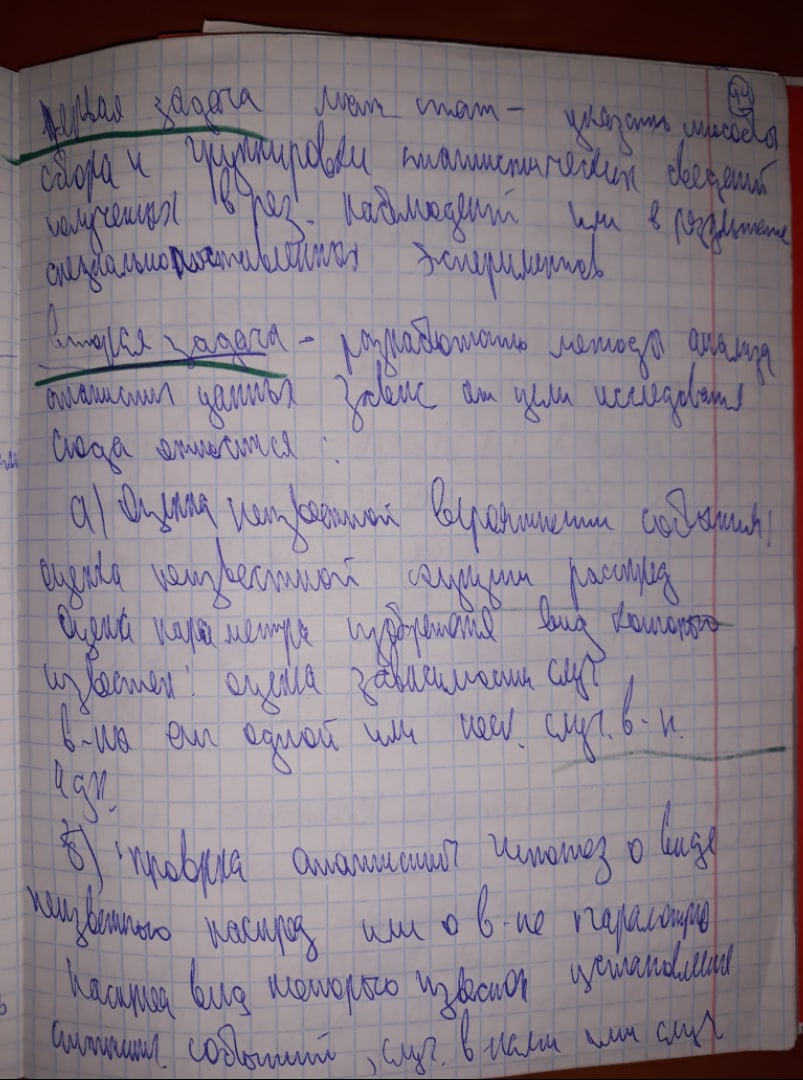 44
первая задача мат стат - указать способы
сбора и группировки статистических сведений
полученных в рез. наблюдений или в результате
специально поставленных экспериментов
Вторая задача - разработать методы анализа
статистич данных завис от цели исследования
сюда относится :
а) Оценка неизвестной вероятности события;
оценка неизвестной функции распред
Оценка параметра вид которого
известен: оценка зависимости случ
в-ны от одной или неск. случ. в-н.
и др.
б) проврка статистич гипотез о виде
неизвестного распред или о в-не
распред вид которого известен
событий , случ. в-нами или случ